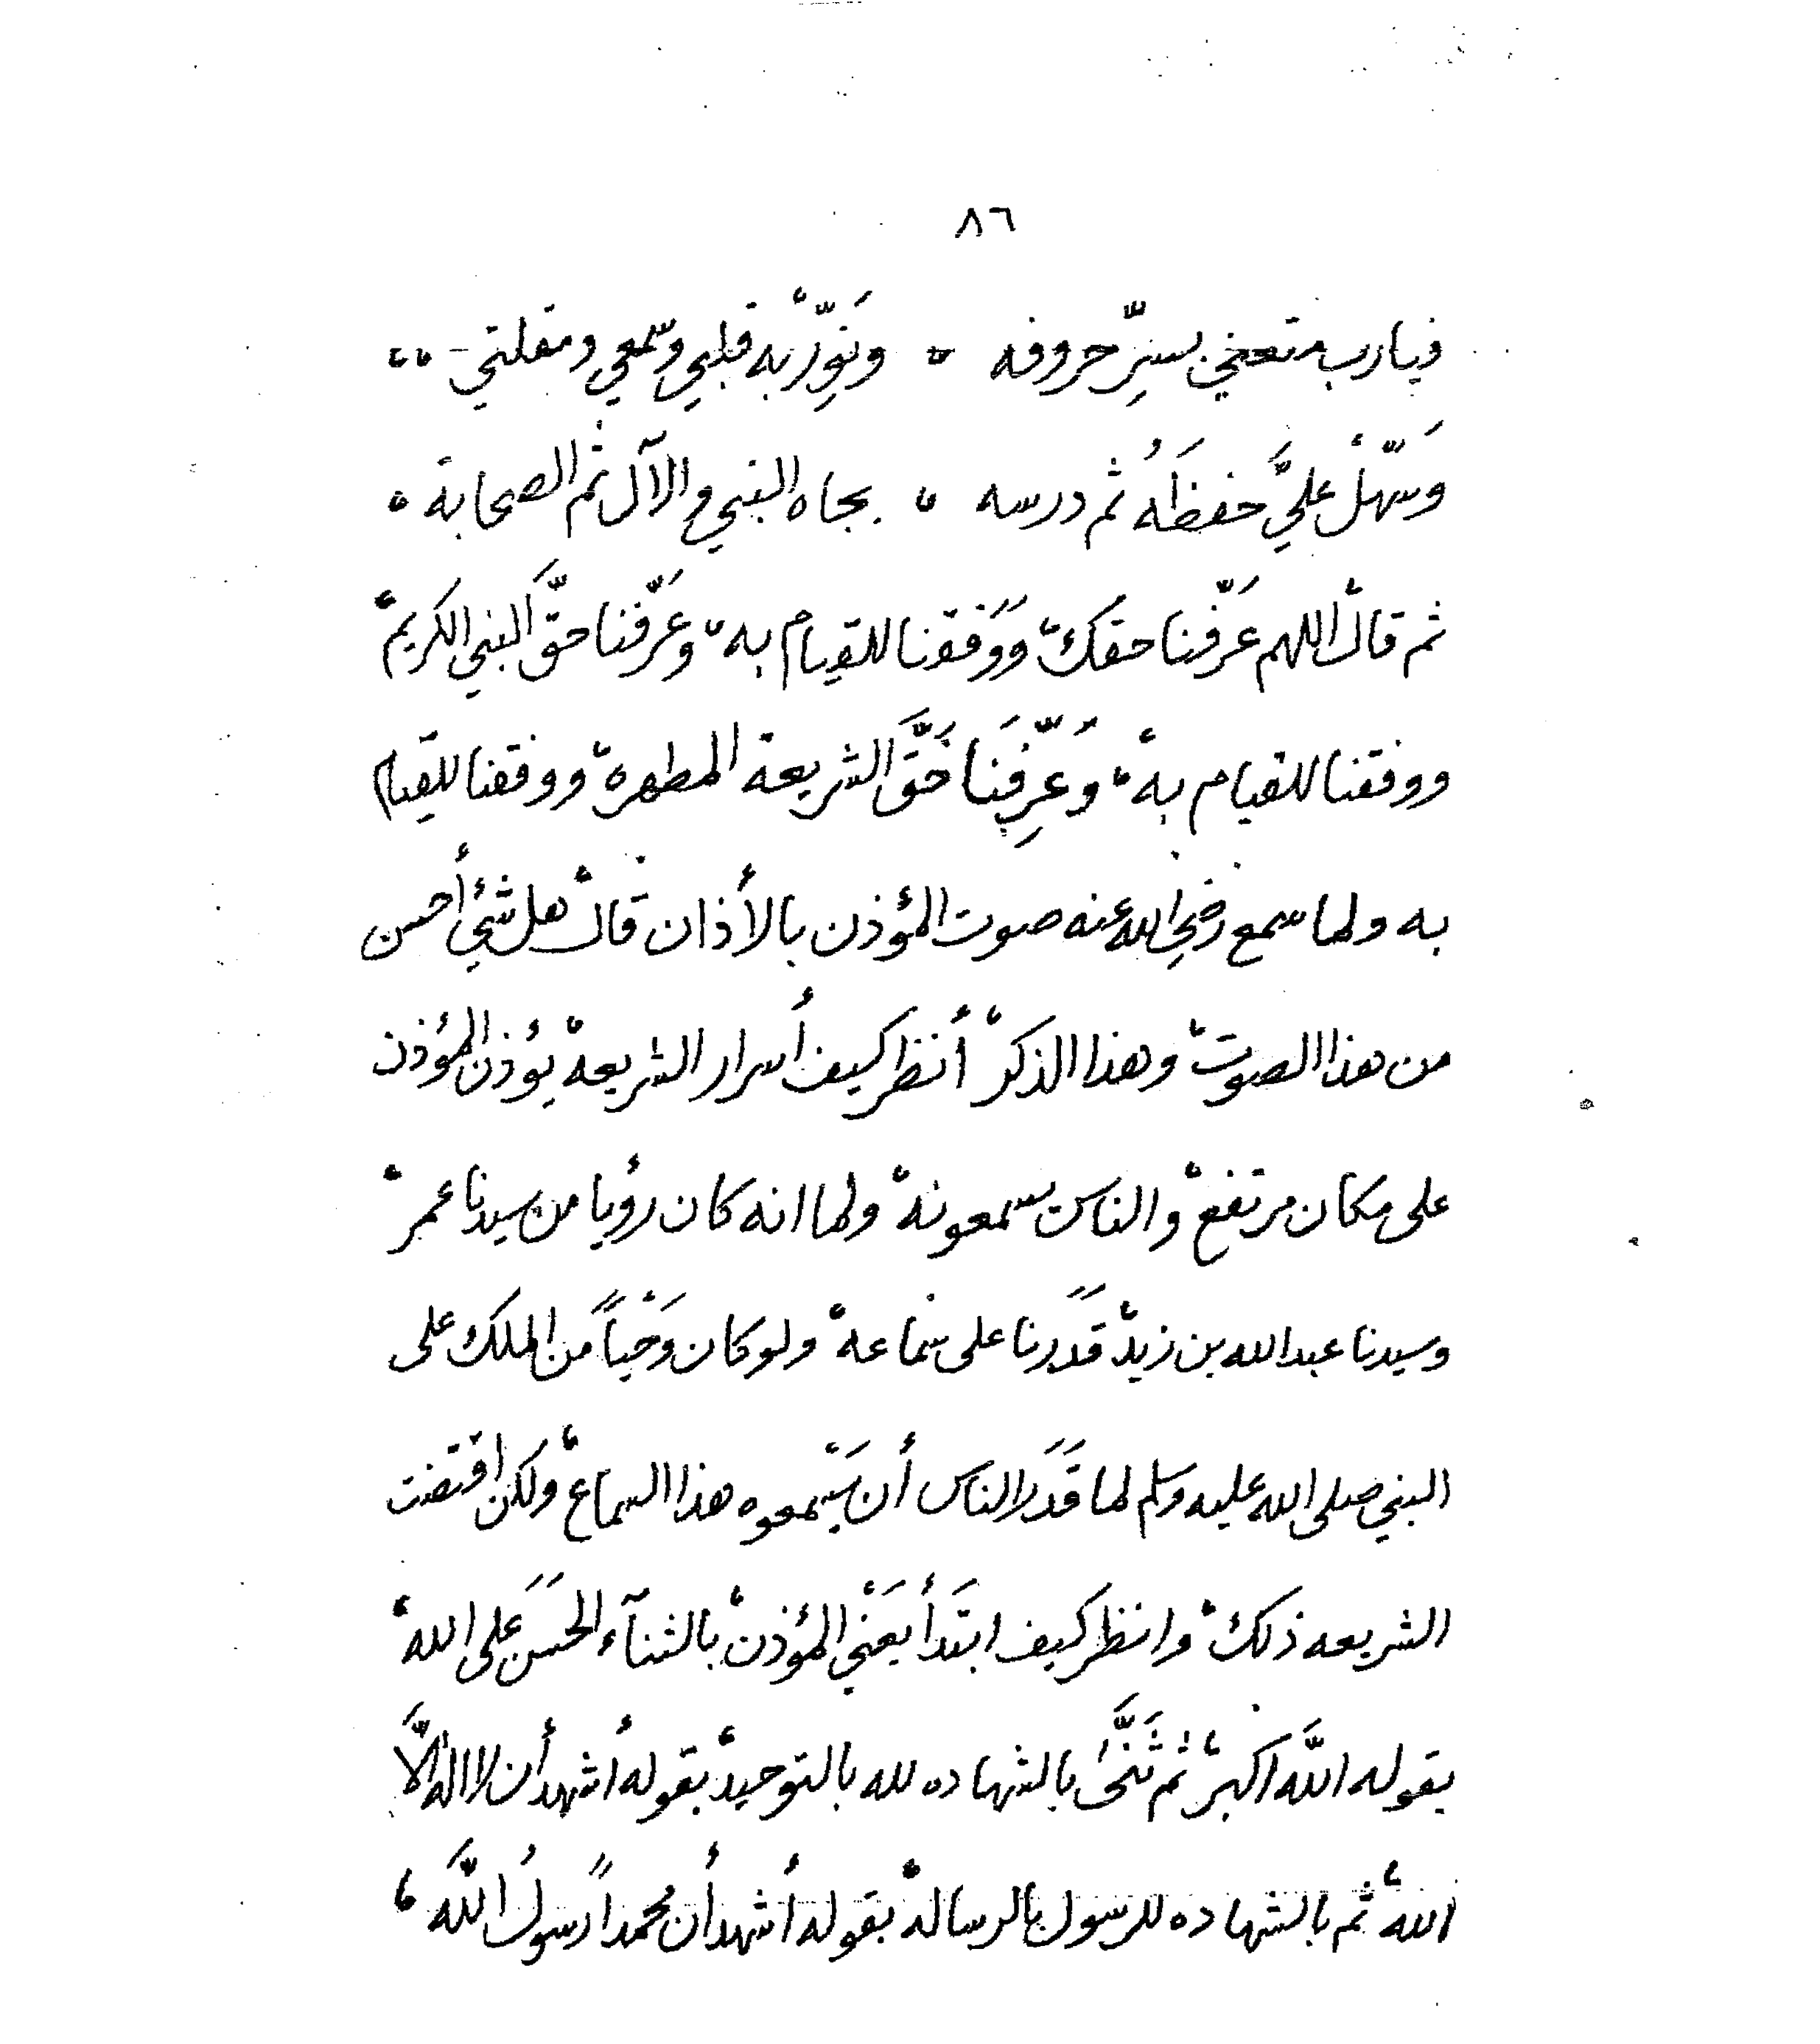 ٨٦
فيارب متعني بسِرِّ حروفه ، ونَوِّرْ به قلبي وسمعي ومقلتي ،،
وَسَهّلْ عليَّ حفظَهُ ثم درسه ، بجاه النبي والآل ثم الصحابة ،
ثم قال اللهم عَرّفنا حقك، وَوَفقنا للقيام به، وعَرّفنا حقَّ النبي الكريم،
ووفقنا للقيام به، وَعَرِّفنَا حَقَّ الشريعة المطهره، ووفقنا للقيام
به ولما سمع رضي الله عنه صوت المؤذن بالأذان قال، هل شئ أحسن
من هذا الصوت، وهذا الذكر، أنظر كيف أسرار الشريعة، يؤذن المؤذن
على مكان مرتفع، والناس يسمعونه، ولما انه كان رؤيا من سيدنا عمر،
وسيدنا عبد الله بن زيد، قَدَرنا على سماعه، ولو كان وَحْياً من الملك على
النبي صلى الله عليه وسلم لما قَدَرَ الناس أن يَسْمعوه هذا السماع، ولكن اقتضت
الشريعه ذلك، وانظر كيف ابتَدأ يَعْني المؤذن، بالثنآء الحسَن على الله،
بقوله اللَّه اكبر، ثم ثَنَّىٰ بالشهاده لله بالتوحيد، بقوله أشهد أن لا اله الَّا
الله، ثم بالشهاده للرسول بالرساله، بقوله أشهد أن محمداً رسولُ اللَّه،